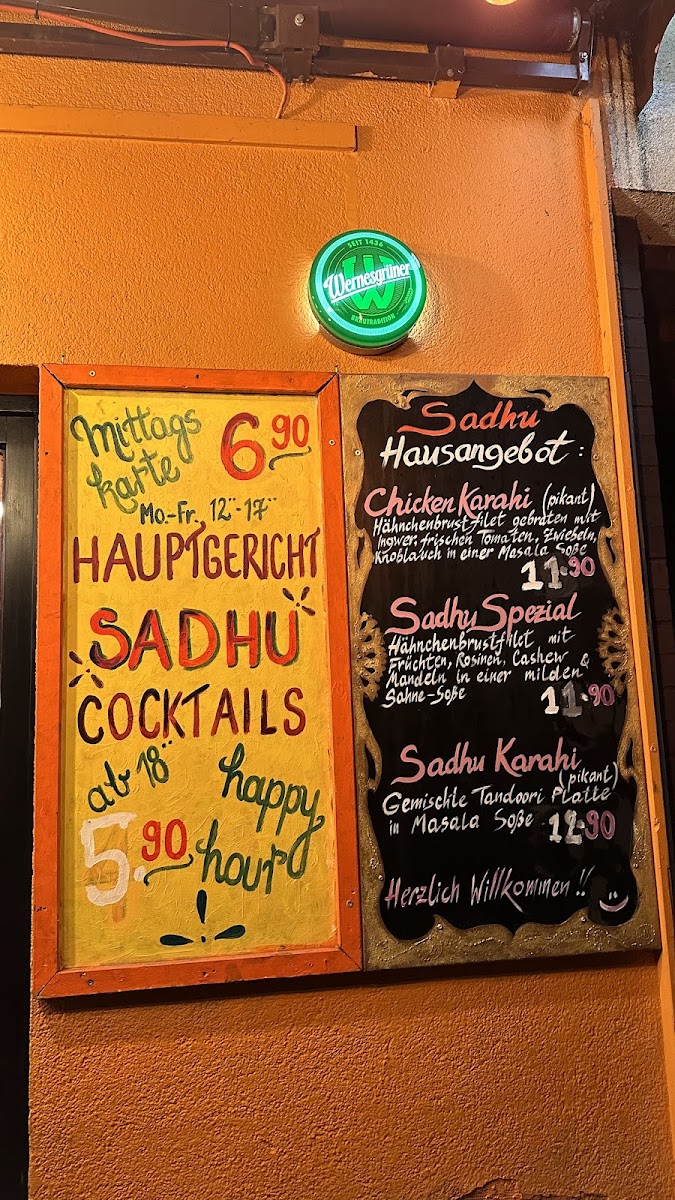 SEIT 1436
Wernesgrüner
BRAUTRADITION
Mittags
karte
6.90
Mo.-Fr. 12°°-17°°
HAUPTGERICHT
SADHU
COCKTAILS
ab 18°°
happy
hour
5.90
!
Sadhu
Hausangebot :
Chicken Karahi (pikant)
Hähnchenbrustfilet gebraten mit
Ingwer, frischen Tomaten, Zwiebeln,
Knoblauch in einer Masala Soße
11.90
Sadhu Spezial
Hähnchenbrustfilet mit
Früchten, Rosinen, Cashew &
Mandeln in einer milden
Sahne-Soße
11.90
Sadhu Karahi
(pikant)
Gemischte Tandoori Platte
in Masala Soße 12.90
Herzlich Willkommen !!